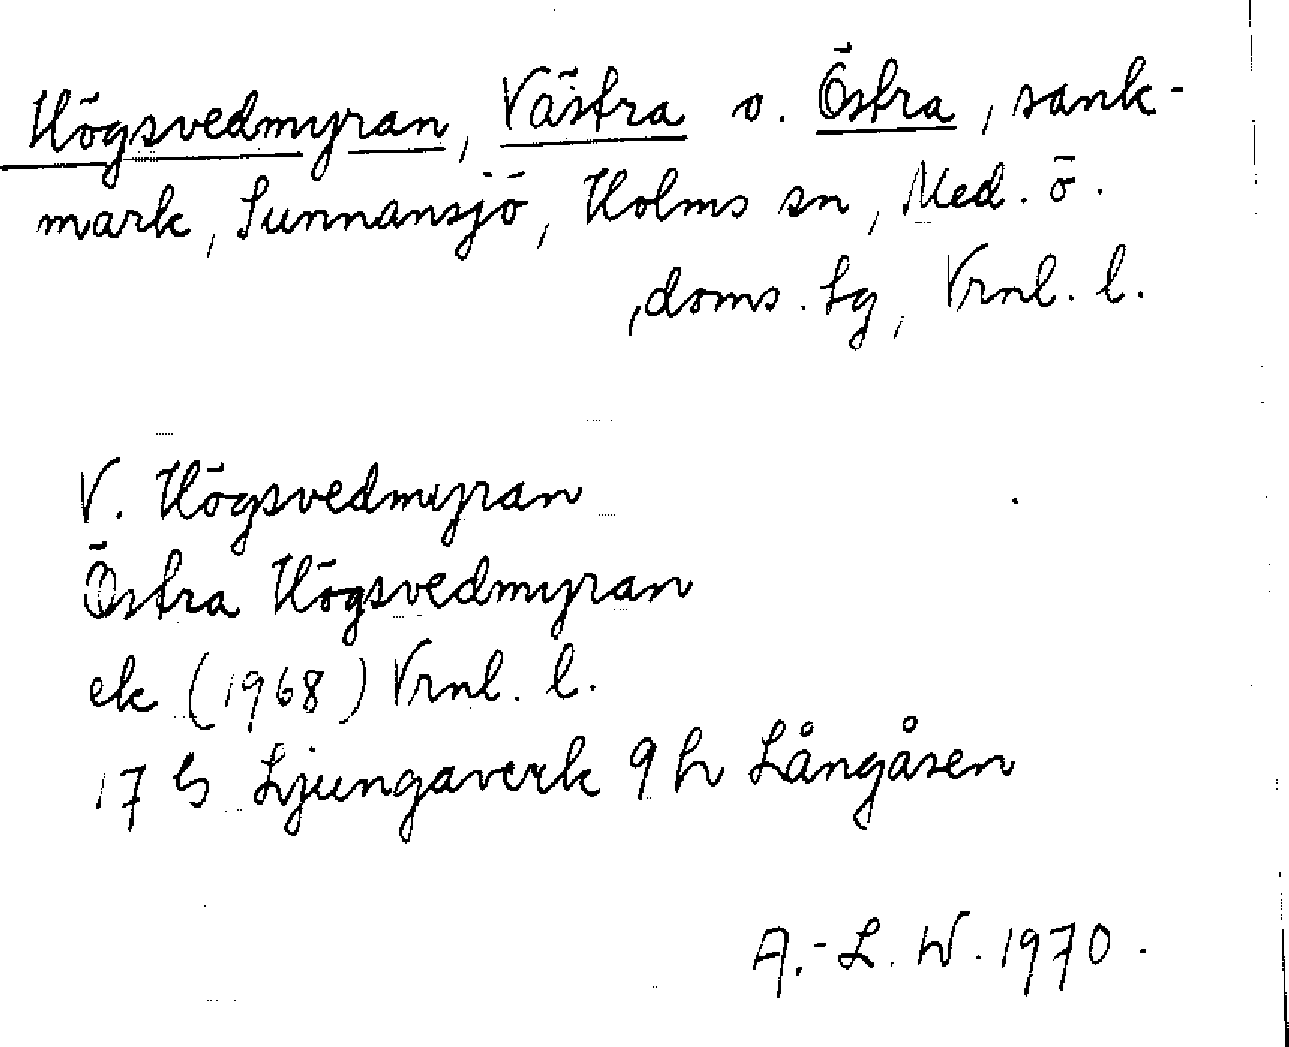 Högsvedmyran, Västra o. Östra, sank-
mark, Sunnansjö, Holms sn, Med. ö.
, doms. tg, Vrnl. l.
V. Högsvedmyran
Östra Högsvedmyran
ek (1968) Vrnl. l.
17 G Ljungaverk 9 h Långåsen
A.-L. W. 1970.